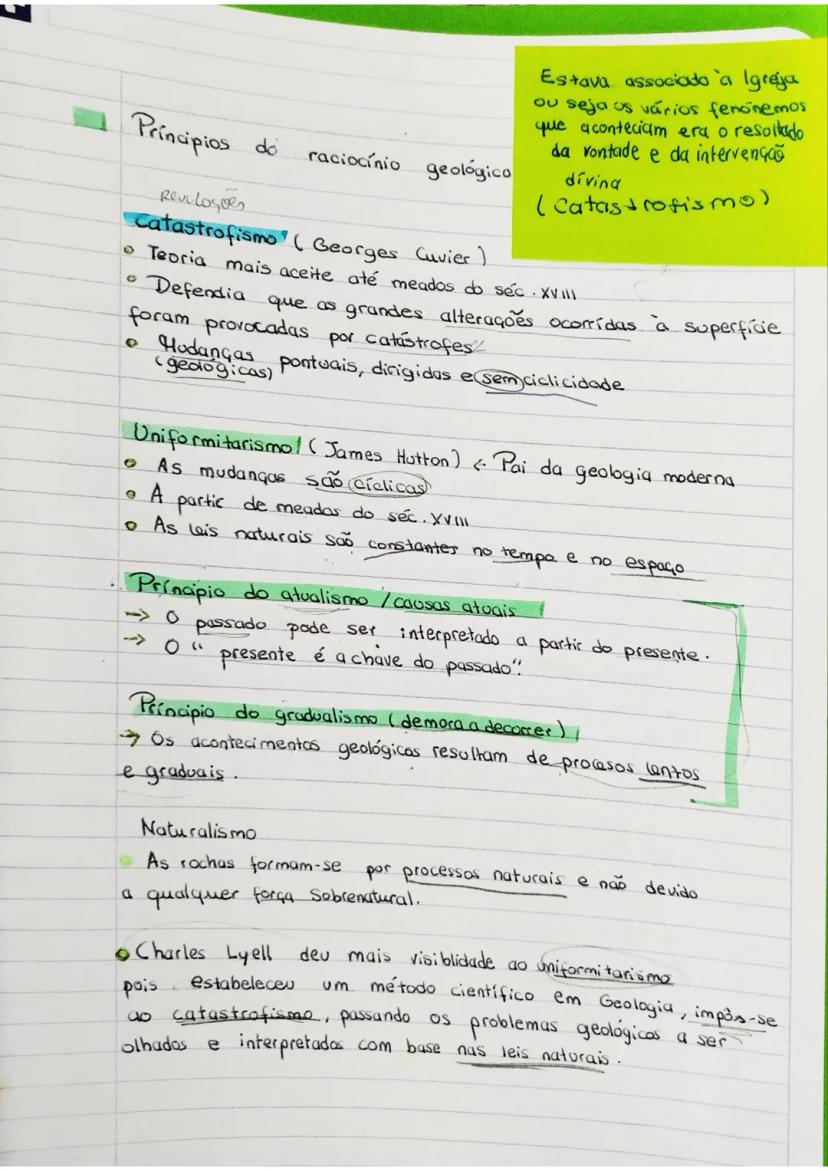 Estava associado à Igreja
ou seja os vários fenónemos
que aconteciam era o resoltado
da vontade e da intervenção
divina
(Catastrofismo)
Príncipios do raciocínio geológico
Revoluções
Catastrofismo (Georges Cuvier)
• Teoria mais aceite até meados do séc. XVIII
• Defendia que as grandes alterações ocorridas à superfície
foram provocadas por catástrofes
• Mudanças pontuais, dirigidas e sem ciclicidade
(geológicas)
Uniformitarismo (James Hutton) ← Pai da geologia moderna
• As mudanças são cíclicas
• A partir de meados do séc. XVIII
• As leis naturais são constantes no tempo e no espaço
Príncipio do atualismo / causas atuais
→ O passado pode ser interpretado a partir do presente.
→ O "presente é a chave do passado".
Príncipio do gradualismo (demora a decorrer)
→ Os acontecimentos geológicos resultam de procesos lentos
e graduais.
Naturalismo
• As rochas formam-se por processos naturais e não devido
a qualquer força sobrenatural.
• Charles Lyell deu mais visiblidade ao uniformitarismo
pois estabeleceu um método científico em Geologia, impôs-se
ao catastrofismo, passando os problemas geológicos a ser
olhados e interpretados com base nas leis naturais.